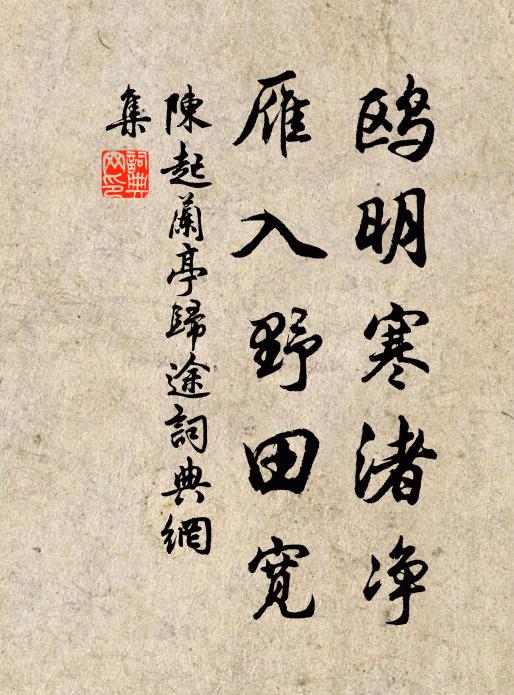 鸥明寒渚净
雁入野田寬
陳起蘭亭歸途詞典網
集
詞典
网印